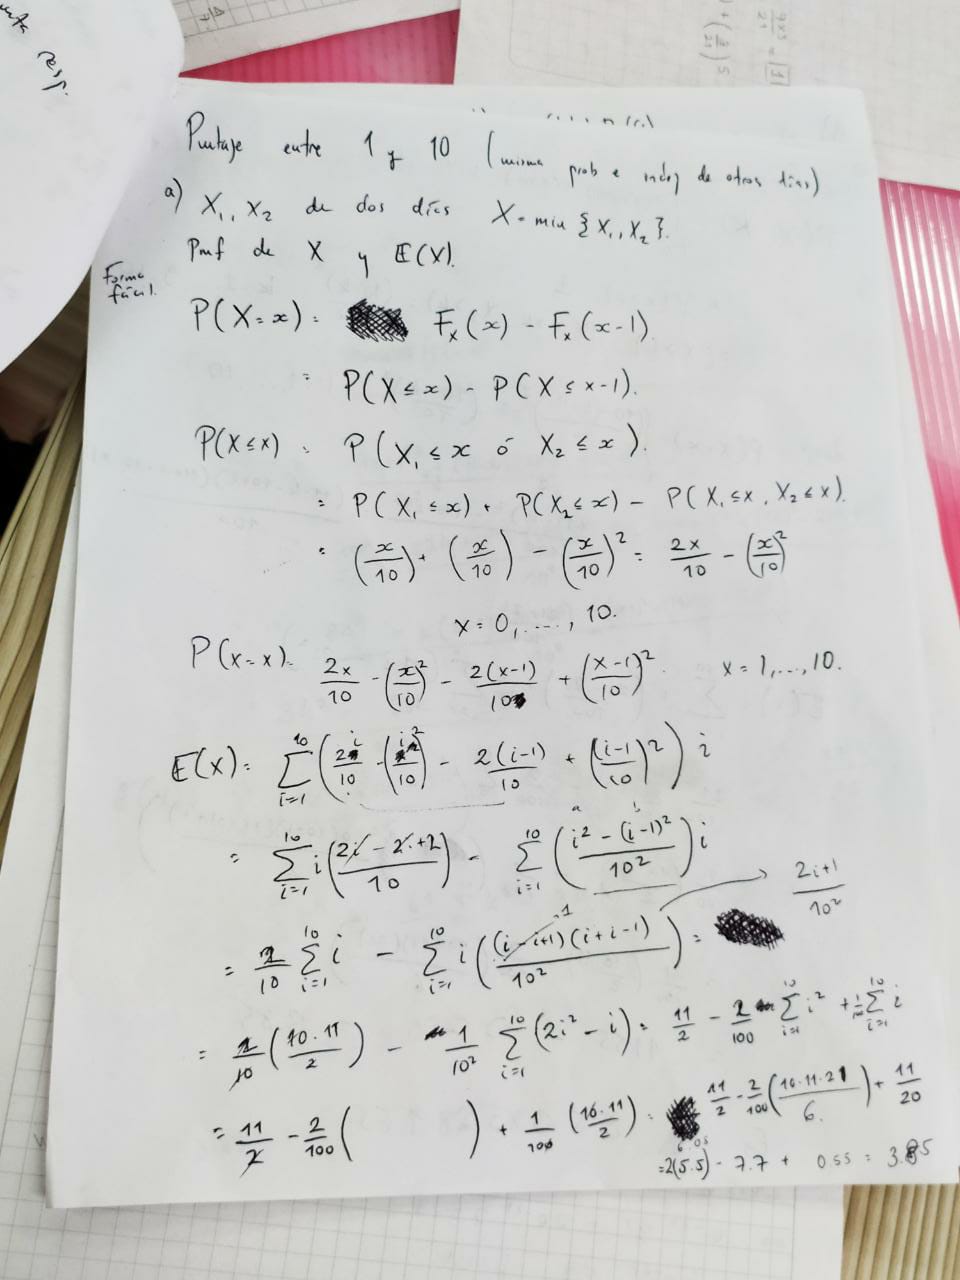 Puntaje entre 1 y 10 (misma prob e indep de otros días)
a) X₁, X₂ de dos días X = min {X₁, X₂}.
Pmf de X y E(X).
Forma fácil.
P(X=x) = F_X(x) - F_X(x-1).
= P(X ≤ x) - P(X ≤ x-1).
P(X≤x) = P(X₁ ≤ x ó X₂ ≤ x).
= P(X₁ ≤ x) + P(X₂ ≤ x) - P(X₁ ≤ x, X₂ ≤ x).
= (x/10) + (x/10) - (x/10)² = 2x/10 - (x/10)²
x = 0, ..., 10.
P(x=x) = 2x/10 - (x/10)² - 2(x-1)/10 + (x-1/10)² x = 1, ..., 10.
E(X) = Σ_{i=1}^{10} (2i/10 - (i/10)² - 2(i-1)/10 + (i-1/10)²) i
= Σ_{i=1}^{10} i (2i - 2i + 2/10) - Σ_{i=1}^{10} (i² - (i-1)²/10²) i
= 2/10 Σ_{i=1}^{10} i - Σ_{i=1}^{10} i ((i-i+1)(i+i-1)/10²) = → 2i+1/10²
= 2/10 (10·11/2) - 1/10² Σ_{i=1}^{10} (2i² - i) = 11/2 - 2/100 Σ_{i=1}^{10} i² + 1/100 Σ_{i=1}^{10} i
= 11/2 - 2/100 ( ) + 1/100 (10·11/2) = 11/2 - 2/100 (10·11·21/6) + 11/20
= 2(5.5) - 7.7 + 0.55 = 3.85